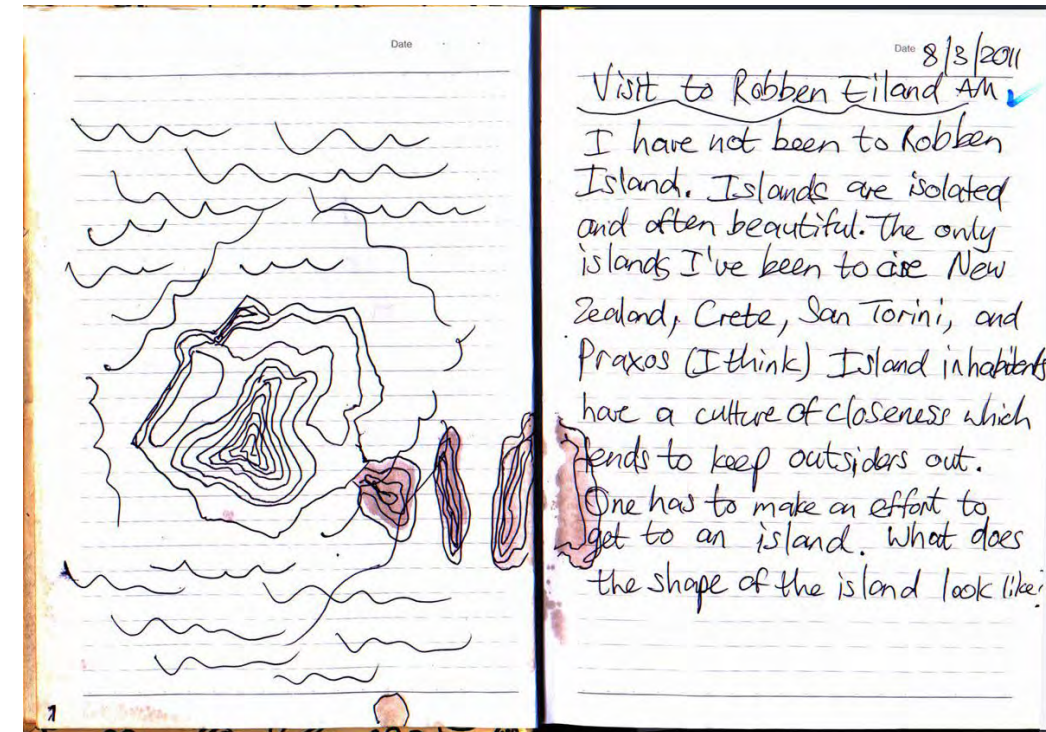 Date
1
Date 8/3/2011
Visit to Robben Eiland AM
I have not been to Robben
Island. Islands are isolated
and often beautiful. The only
islands I've been to are New
Zealand, Crete, San Torini, and
Praxos (I think) Island inhabitents
have a culture of closeness which
tends to keep outsiders out.
One has to make an effort to
get to an island. What does
the shape of the island look like?